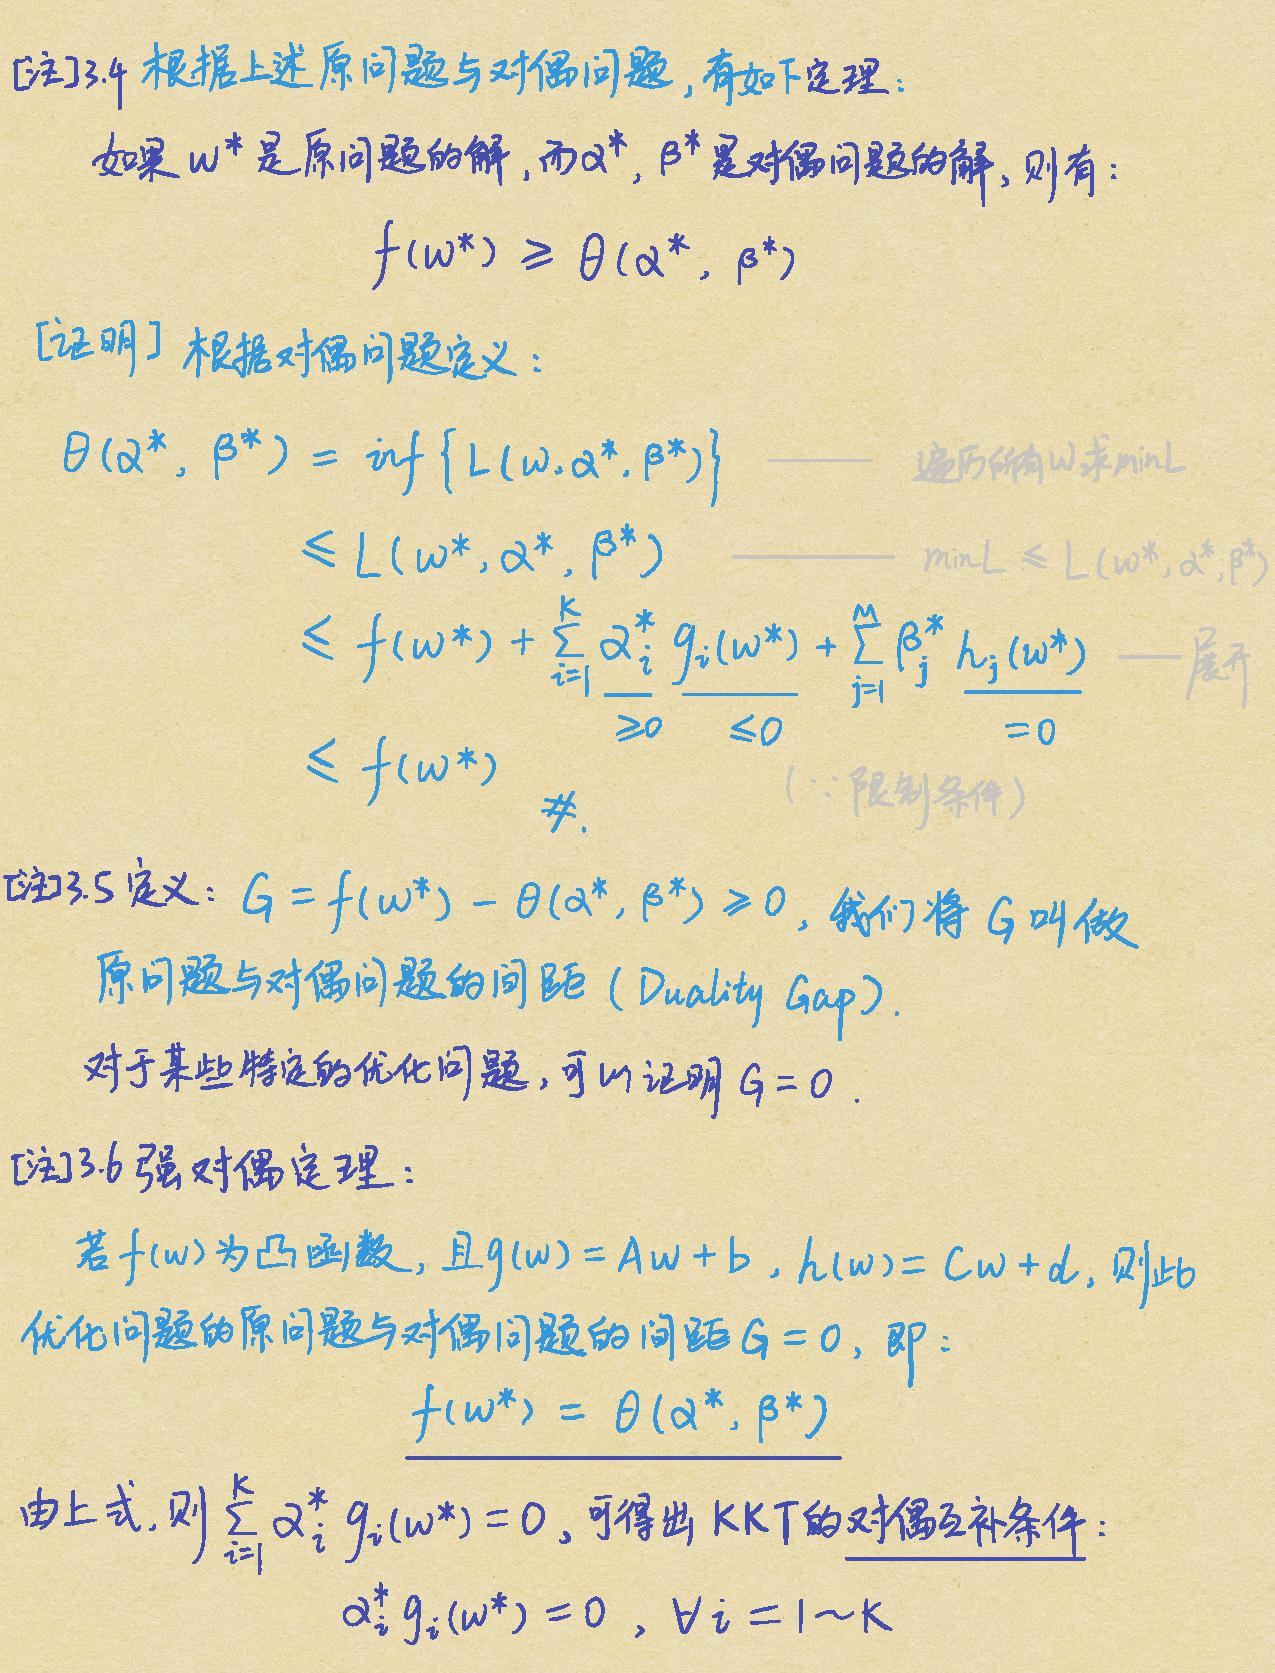 [注]3.4 根据上述原问题与对偶问题,有如下定理:
如果 w* 是原问题的解,而α*, β* 是对偶问题的解,则有:
f(w*) ≥ θ(α*, β*)
[证明] 根据对偶问题定义:
θ(α*, β*) = inf{L(w,α*,β*)} —— 遍历所有w求minL
≤ L(w*,α*,β*) —— minL ≤ L(w*,α*,β*)
≤ f(w*) + Σ_{i=1}^{K} α_i* g_i(w*) + Σ_{j=1}^{M} β_j* h_j(w*) —— 展开
≥0 ≤0 =0
≤ f(w*) (∵限制条件)
#.
[注]3.5 定义: G = f(w*) - θ(α*, β*) ≥ 0, 我们将 G 叫做
原问题与对偶问题的间距 (Duality Gap).
对于某些特定的优化问题,可以证明 G = 0.
[注]3.6 强对偶定理:
若 f(w) 为凸函数, 且g(w) = Aw + b, h(w) = Cw + d, 则此
优化问题的原问题与对偶问题的间距 G = 0, 即:
f(w*) = θ(α*, β*)
由上式,则 Σ_{i=1}^{K} α_i* g_i(w*) = 0, 可得出 KKT的对偶互补条件:
α_i* g_i(w*) = 0, ∀i = 1~K